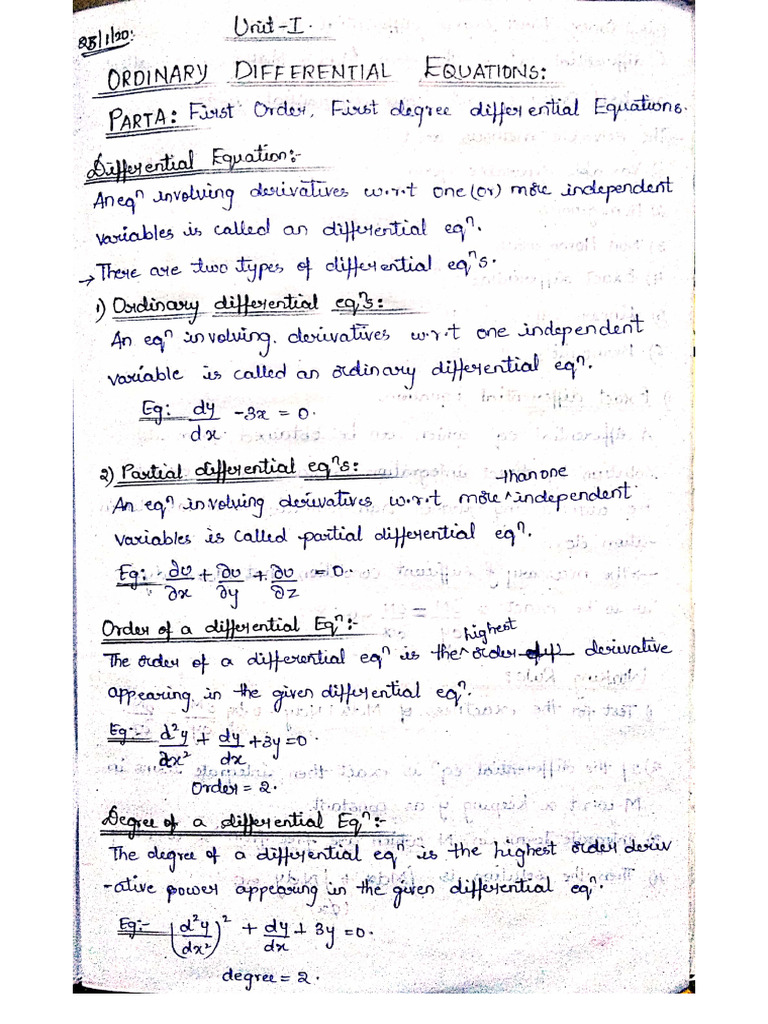 28/1/20:
Unit-I.
ORDINARY DIFFERENTIAL EQUATIONS:
PART A: First Order, First degree differential Equations.
Differential Equation:-
An eqⁿ involving derivatives w.r.t one (or) more independent
variables is called an differential eqⁿ.
→ There are two types of differential eqⁿs.
1) Ordinary differential eqⁿs:
An eqⁿ involving derivatives w.r.t one independent
variable is called an ordinary differential eqⁿ.
Eg: dy/dx - 3x = 0.
2) Partial differential eqⁿs:
An eqⁿ involving derivatives w.r.t more than one independent
variables is called partial differential eqⁿ.
Eg: ∂υ/∂x + ∂υ/∂y + ∂υ/∂z = 0.
Order of a differential Eqⁿ:-
The order of a differential eqⁿ is the highest order derivative
appearing in the given differential eqⁿ.
Eg:- d²y/dx² + dy/dx + 3y = 0.
Order = 2.
Degree of a differential Eqⁿ:-
The degree of a differential eqⁿ is the highest order deriv
-ative power appearing in the given differential eqⁿ.
Eg:- (d²y/dx²)² + dy/dx + 3y = 0.
degree = 2.